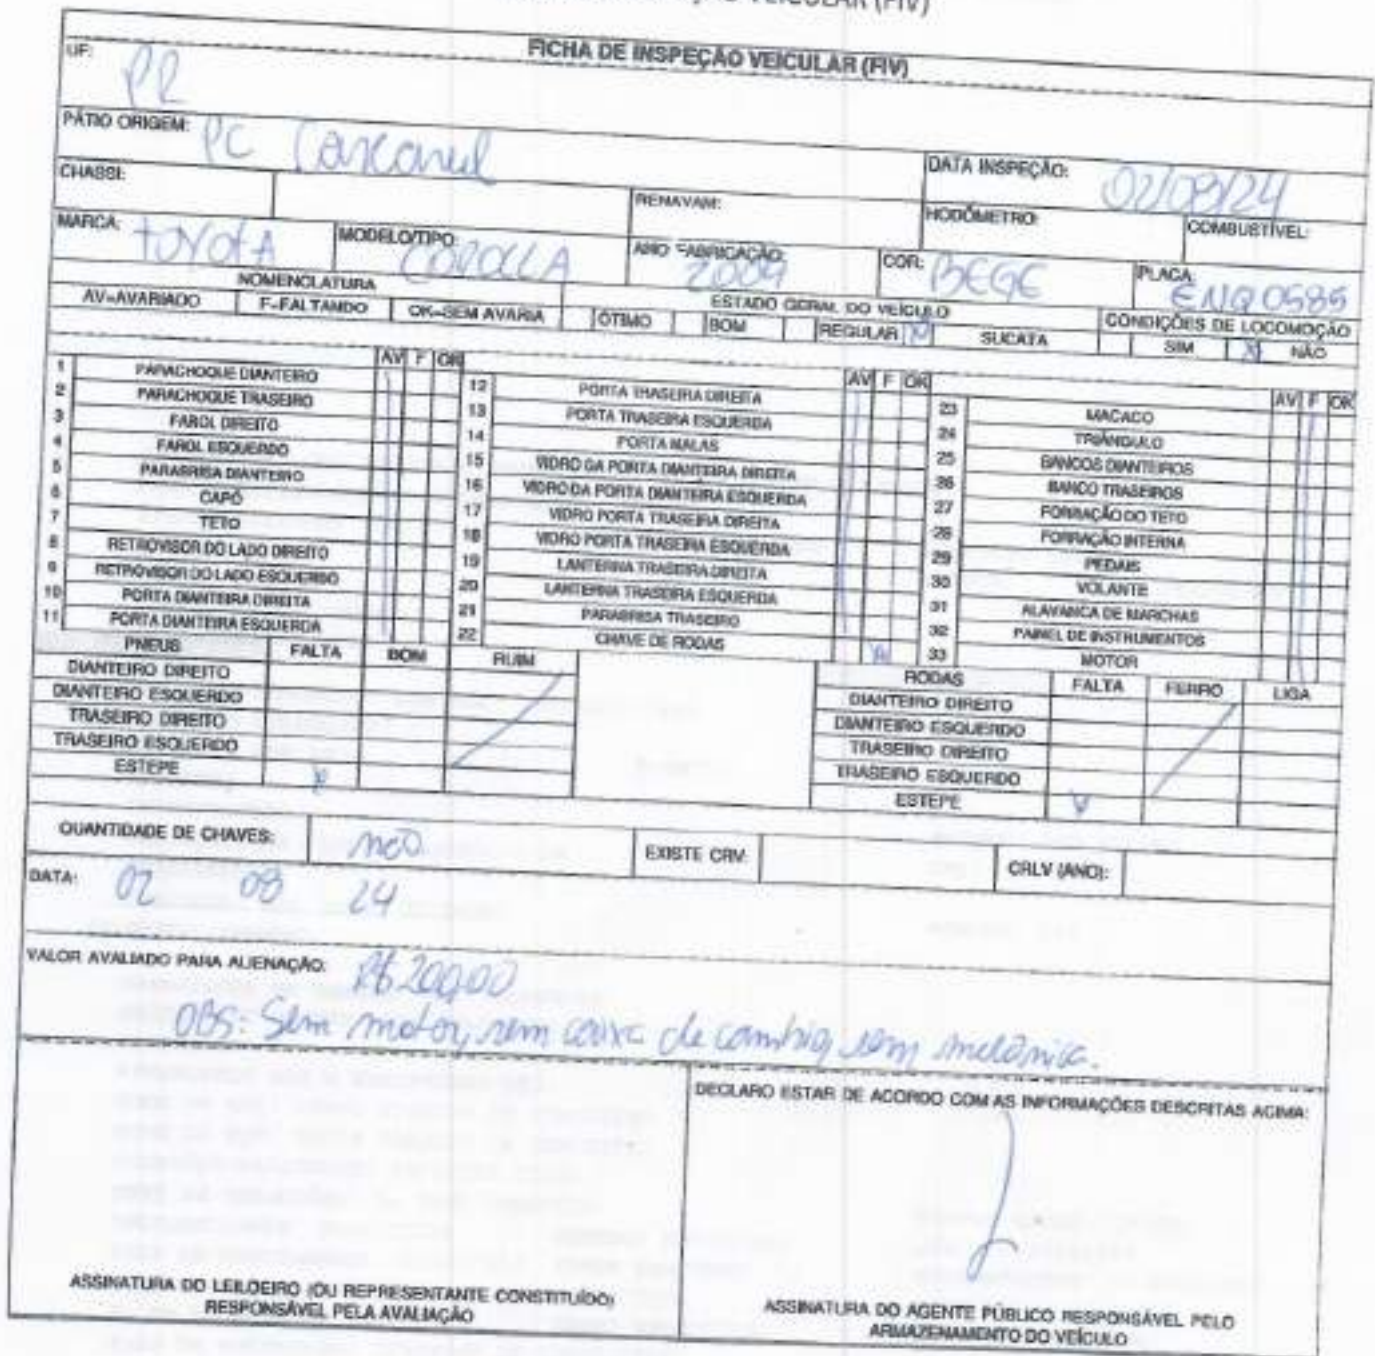 VEICULAR (FIV)
FICHA DE INSPEÇÃO VEICULAR (FIV)
UF: PR
PÁTIO ORIGEM: PC Cascavel
DATA INSPEÇÃO: 02/08/24
CHASSI: RENAVAM: HODÔMETRO: COMBUSTÍVEL:
MARCA: TOYOTA MODELO/TIPO: COROLLA ANO FABRICAÇÃO: 2009 COR: BEGE PLACA: ENQ0585
NOMENCLATURA ESTADO GERAL DO VEÍCULO CONDIÇÕES DE LOCOMOÇÃO
AV=AVARIADO F=FALTANDO OK=SEM AVARIA ÓTIMO BOM REGULAR X SUCATA SIM X NÃO
AV F OK
1 PARACHOQUE DIANTEIRO
2 PARACHOQUE TRASEIRO
3 FAROL DIREITO
4 FAROL ESQUERDO
5 PARABRISA DIANTEIRO
6 CAPÔ
7 TETO
8 RETROVISOR DO LADO DIREITO
9 RETROVISOR DO LADO ESQUERDO
10 PORTA DIANTEIRA DIREITA
11 PORTA DIANTEIRA ESQUERDA
AV F OK
12 PORTA TRASEIRA DIREITA
13 PORTA TRASEIRA ESQUERDA
14 PORTA MALAS
15 VIDRO DA PORTA DIANTEIRA DIREITA
16 VIDRO DA PORTA DIANTEIRA ESQUERDA
17 VIDRO PORTA TRASEIRA DIREITA
18 VIDRO PORTA TRASEIRA ESQUERDA
19 LANTERNA TRASEIRA DIREITA
20 LANTERNA TRASEIRA ESQUERDA
21 PARABRISA TRASEIRO
22 CHAVE DE RODAS X
AV F OK
23 MACACO
24 TRIÂNGULO
25 BANCOS DIANTEIROS
26 BANCO TRASEIROS
27 FORRAÇÃO DO TETO
28 FORRAÇÃO INTERNA
29 PEDAIS
30 VOLANTE
31 ALAVANCA DE MARCHAS
32 PAINEL DE INSTRUMENTOS
33 MOTOR
PNEUS FALTA BOM RUIM
DIANTEIRO DIREITO
DIANTEIRO ESQUERDO
TRASEIRO DIREITO
TRASEIRO ESQUERDO
ESTEPE X
RODAS FALTA FERRO LIGA
DIANTEIRO DIREITO
DIANTEIRO ESQUERDO
TRASEIRO DIREITO
TRASEIRO ESQUERDO
ESTEPE X
QUANTIDADE DE CHAVES: não EXISTE CRV: CRLV (ANO):
DATA: 02 08 24
VALOR AVALIADO PARA ALIENAÇÃO: R$ 200,00
OBS: Sem motor, sem caixa de cambio, sem mecânica.
DECLARO ESTAR DE ACORDO COM AS INFORMAÇÕES DESCRITAS ACIMA:
ASSINATURA DO LEILOEIRO (OU REPRESENTANTE CONSTITUÍDO)
RESPONSÁVEL PELA AVALIAÇÃO
ASSINATURA DO AGENTE PÚBLICO RESPONSÁVEL PELO
ARMAZENAMENTO DO VEÍCULO